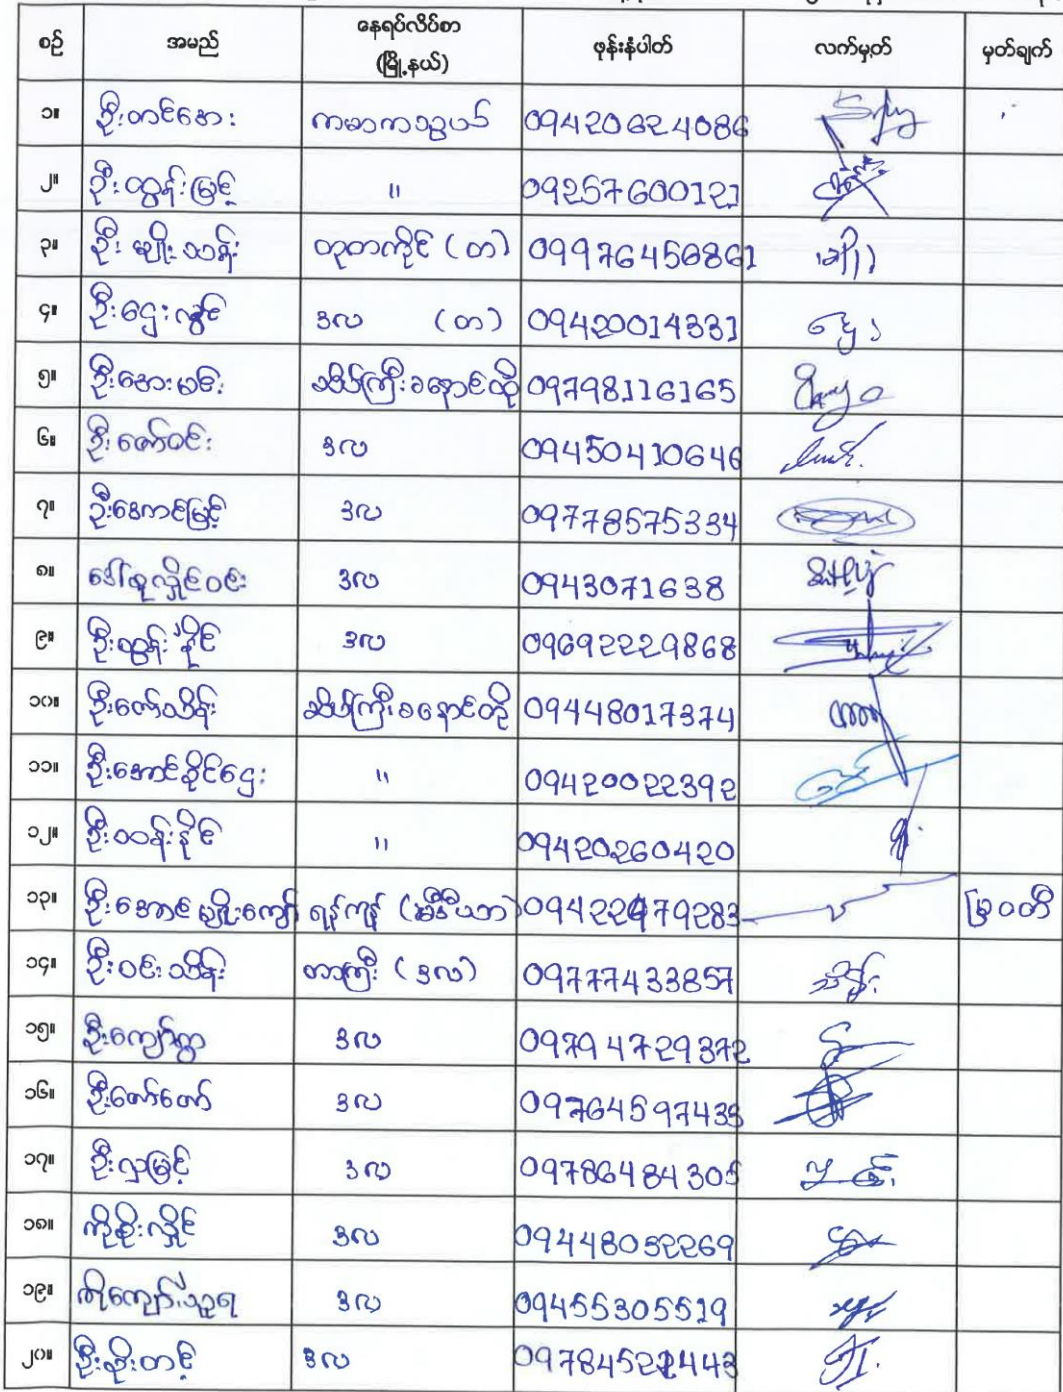 စဉ် အမည် နေရပ်လိပ်စာ (မြို့နယ်) ဖုန်းနံပါတ် လက်မှတ် မှတ်ချက်
၁။ ဦးတင်အေး 09420624086
၂။ ဦးထွန်းမြင့် " 09257600121
၃။ ဦးမျိုးသန်း တွံတကိုင် (တ) 09976456861
၄။ ဦးဌေးလွင် ဒလ (တ) 09420014331
၅။ ဦးအေးမင်း ဆိပ်ကြီးခနောင်တို 09798116165
၆။ ဦးဇော်ဝင်း ဒလ 09450410646
၇။ ဦးအောင်မြင့် ဒလ 09778575334
၈။ ဒေါ်စုလှိုင်ဝင်း ဒလ 0943071638
၉။ ဦးထွန်းနိုင် ဒလ 09692229868
၁၀။ ဦးဇော်သိန်း ဆိပ်ကြီးခနောင်တို 09448017374
၁၁။ ဦးအောင်ခိုင်ဌေး " 09420022392
၁၂။ ဦးသန်းနိုင် " 09420260420
၁၃။ ဦးအောင်မျိုးကျော် ရန်ကုန် (မီဒီယာ) 09422479283 မြဝတီ
၁၄။ ဦးဝင်းသိန်း တာကြီး (ဒလ) 09777433857 သိန်း
၁၅။ ဦးကျော်ကွ ဒလ 09794729372
၁၆။ ဦးဇော်ဇော် ဒလ 09764597433
၁၇။ ဦးလှမြင့် ဒလ 09786484305
၁၈။ ကိုစိုးလှိုင် ဒလ 09448052269
၁၉။ ကိုကျော်သူရ ဒလ 09455305519
၂၀။ ဦးခိုးတင့် ဒလ 09784522443